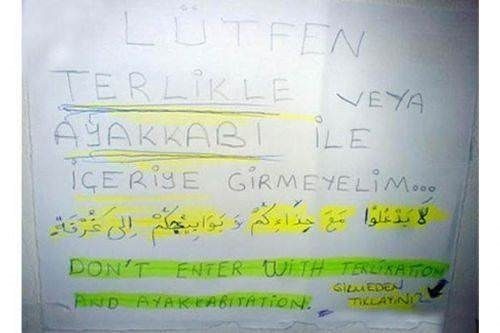 LÜTFEN
TERLİKLE VEYA
AYAKKABI İLE
İÇERİYE GİRMEYELİM...
لَا يَدْخُلُوا مَعَ حِذَاءِكُمْ وَ بَوَابِيجُكُمْ إِلَى غُرْفَةٍ
DON'T ENTER WITH TERLIKATION
AND AYAKKABITATION.
GİRMEDEN
TIKLAYINIZ